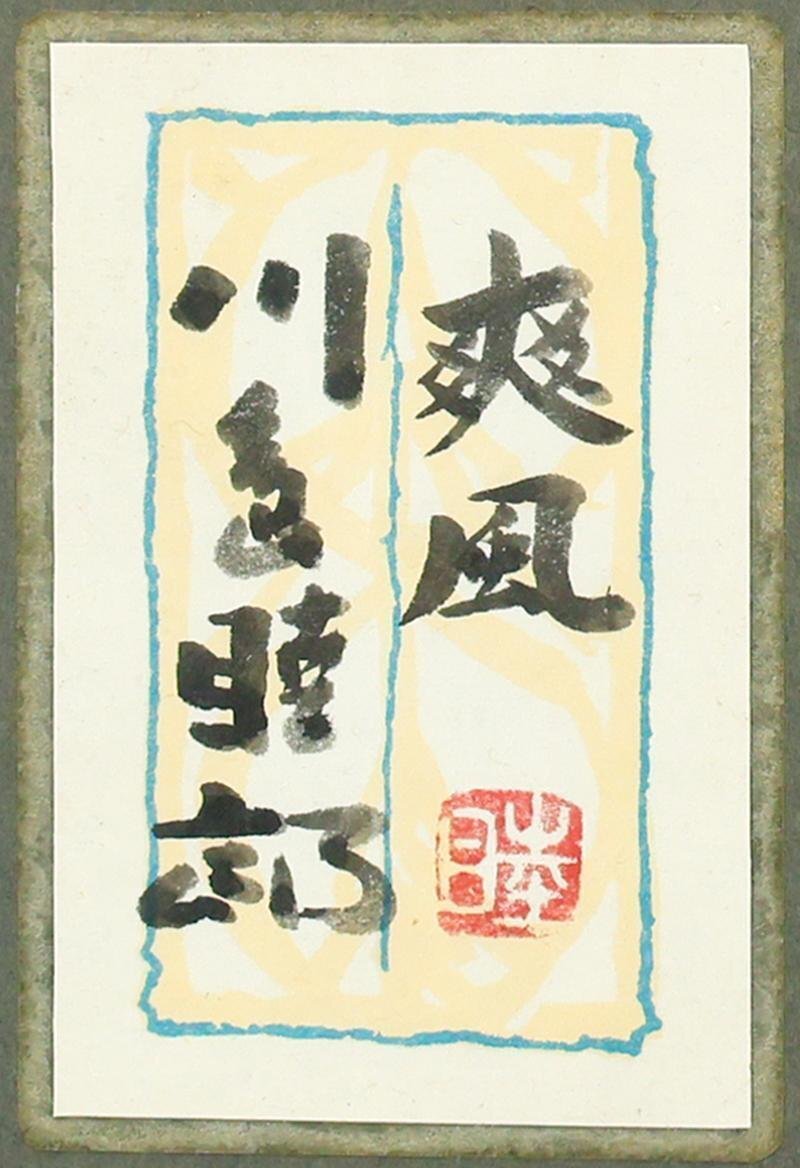 爽風
川島睦郎
睦